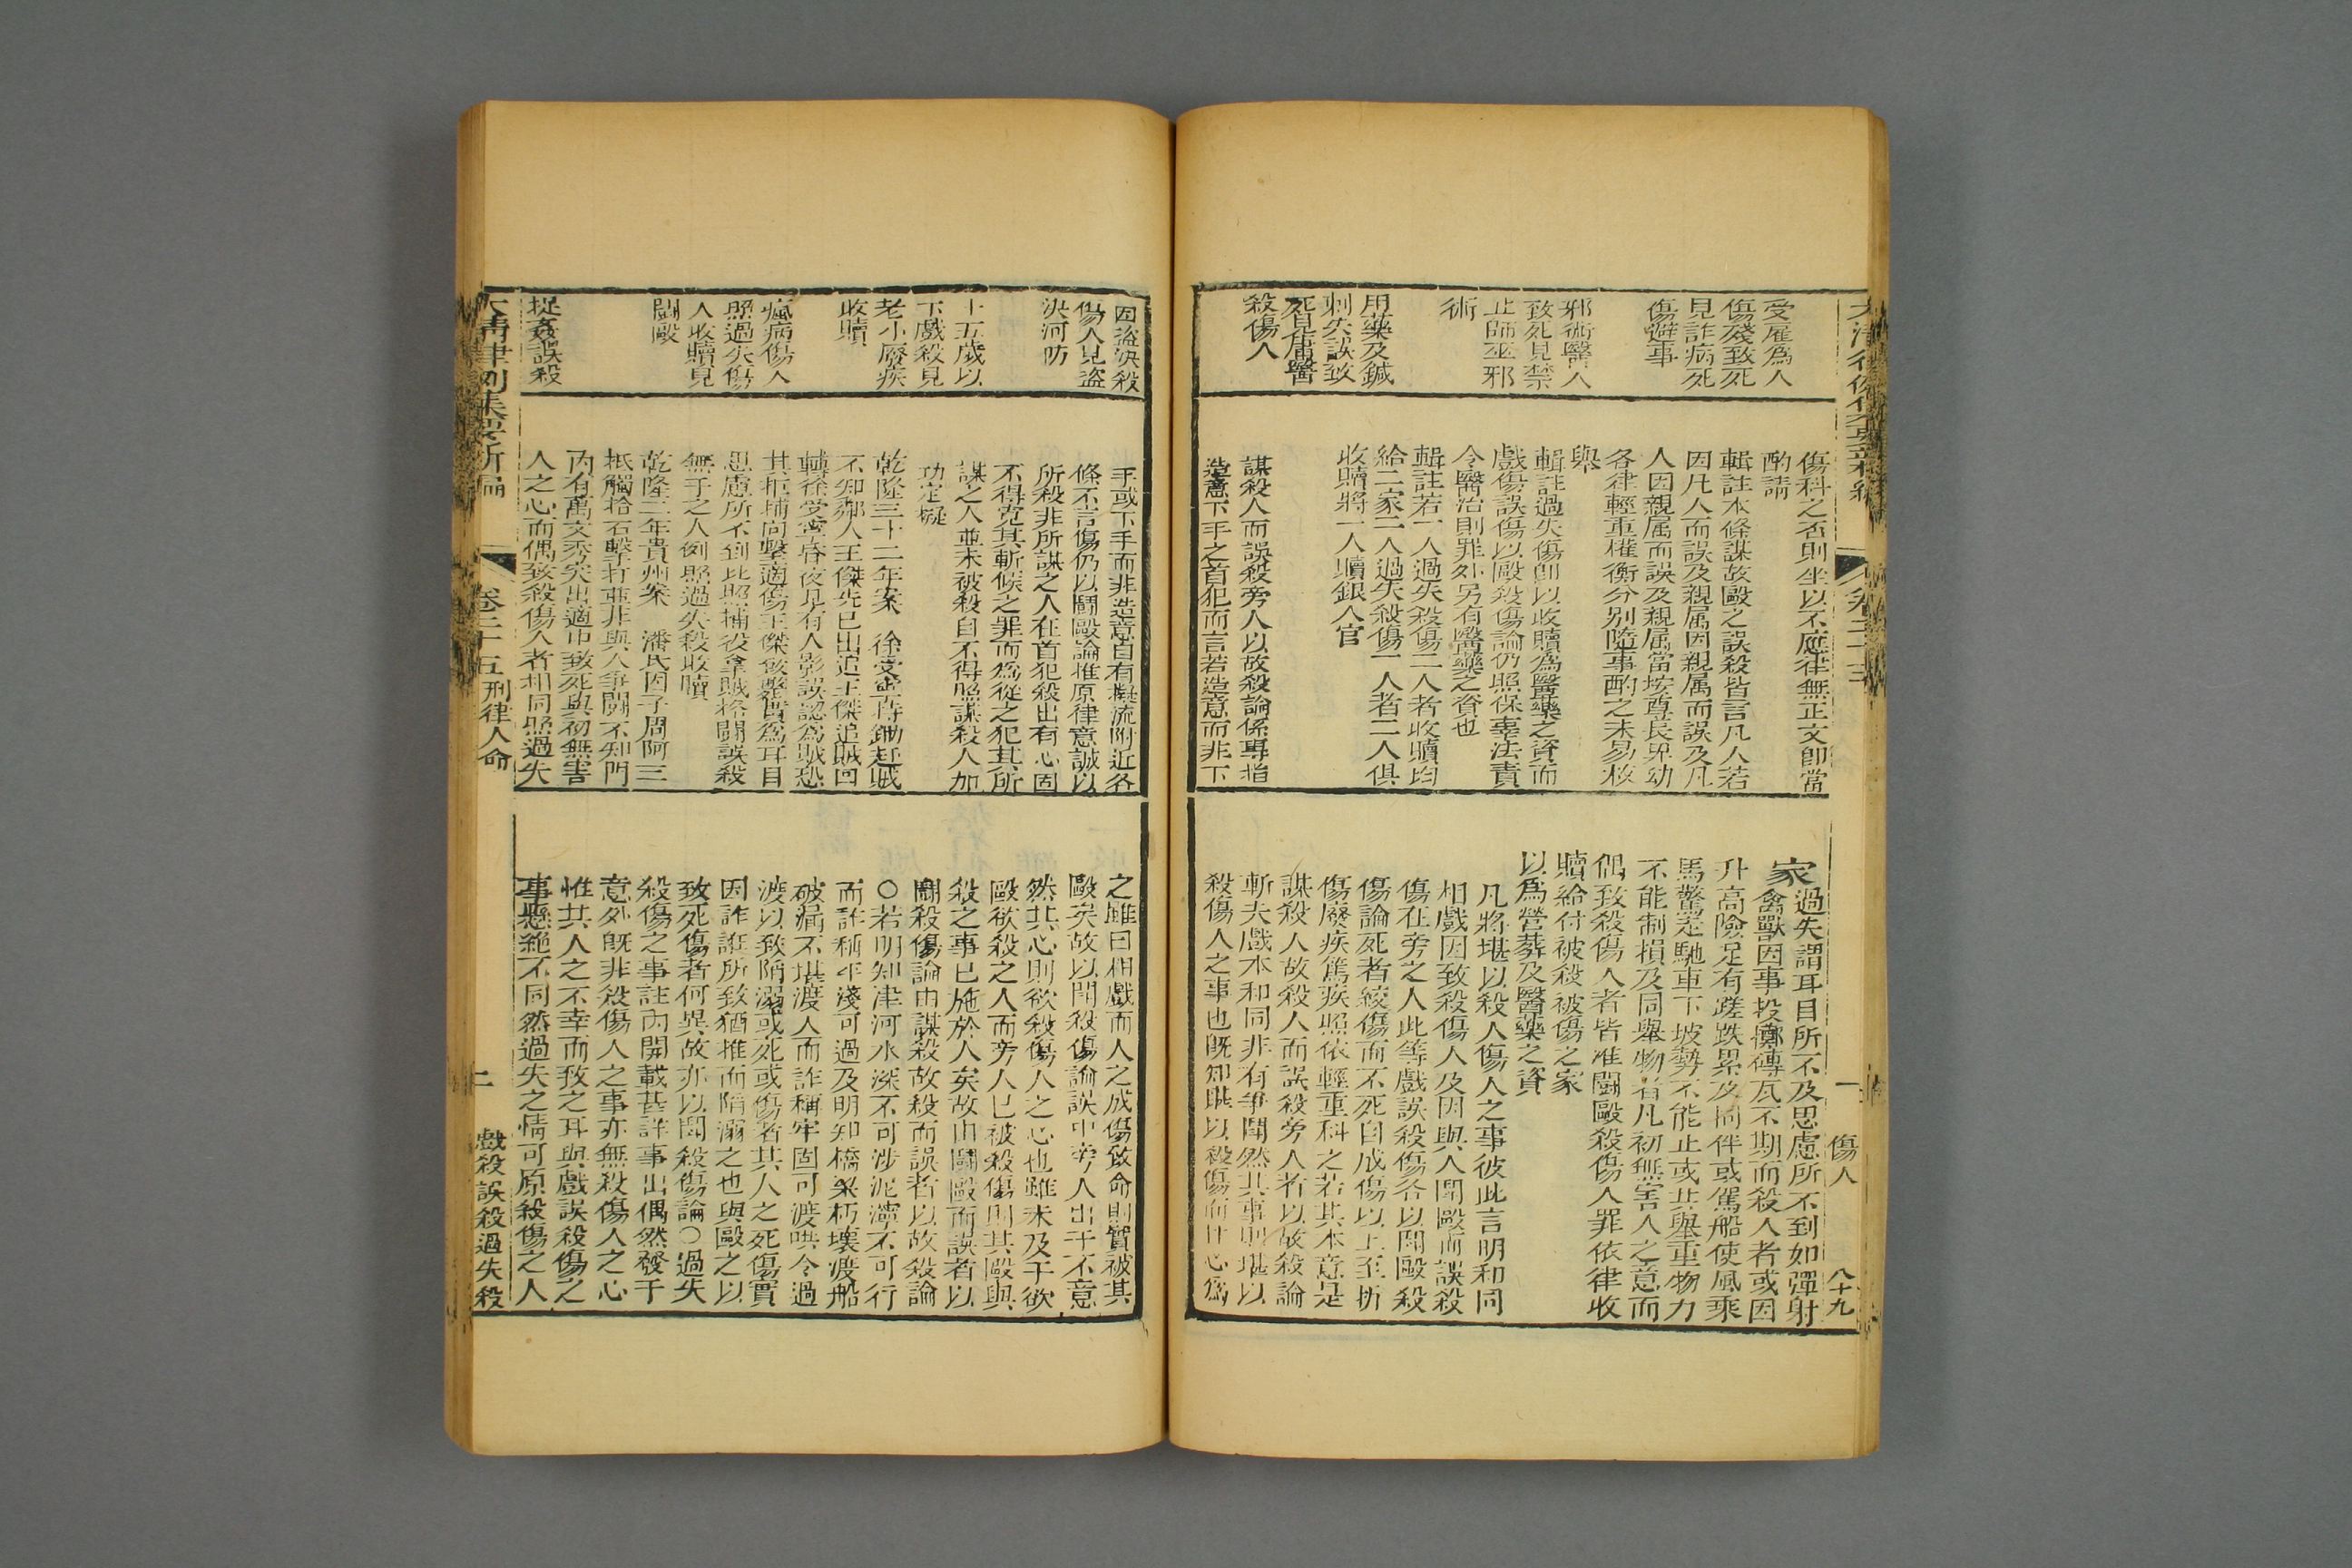 受雇爲人
傷殘致死
見詐病死
傷避事
邪術醫人
致死見禁
止師巫邪
術
用藥及鍼
刺失誤致
死見庸醫
殺傷人
傷科之否則坐以不應律無正文卽當
酌請
輯註本條謀故毆之誤殺皆言凡人若
因凡人而誤及親属因親属而誤及凡
人因親属而誤及親属當按尊長卑幼
各律輕重權衡分别隨事酌之未易枚
舉
輯註過失傷卽以收贖爲醫藥之資而
戲傷誤傷以毆殺傷論仍照保辜法責
令醫治則罪外另有醫藥之資也
輯註若一人過失殺傷二人者收贖均
給二家二人過失殺傷一人者二人俱
收贖將一人贖銀入官
謀殺人而誤殺旁人以故殺論係專指
造意下手之首犯而言若造意而非下
傷人
八十九
家
過失謂耳目所不及思慮所不到如彈射
禽獸因事投擲磚瓦不期而殺人者或因
升高險足有蹉跌累及同伴或駕船使風乘
馬驚走馳車下坡勢不能止或共舉重物力
不能制損及同舉物者凡初無害人之意而
偶致殺傷人者皆准鬪毆殺傷人罪依律收
贖給付被殺被傷之家
以爲營葬及醫藥之資
凡將堪以殺人傷人之事彼此言明和同
相戲因致殺傷人及因與人鬪毆而誤殺
傷在旁之人此等戲誤殺傷各以鬪毆殺
傷論死者絞傷而不死自成傷以上至折
傷廢疾篤疾照依輕重科之若其本意是
謀殺人故殺人而誤殺旁人者以故殺論
斬夫戲本和同非有爭鬪然其事則堪以
殺傷人之事也既知堪以殺傷而甘心爲
因盜決殺
傷人見盜
決河防
十五歲以
下戲殺見
老小廢疾
收贖
瘋病傷人
照過失傷
人收贖見
鬪毆
捉姦誤殺
手或下手而非造意自有擬流附近各
條不言傷仍以鬪毆論推原律意誠以
所殺非所謀之人在首犯殺出有心固
不得寛其斬候之罪而爲從之犯其所
謀之人並未被殺自不得照謀殺人加
功定擬
乾隆三十二年案　徐受寧持鋤赶賊
不知鄰人王傑先已出追王傑追賊回
轉徐受寧昏夜見有人影誤認爲賊恐
其拒捕向擊適傷王傑斃實爲耳目
思慮所不到比照捕役拿賊格鬪誤殺
無干之人例照過失殺收贖
乾隆二年貴州案　潘氏因子周阿三
抵觸拾石擊打並非與人爭鬪不知門
内有萬文秀突出適中致死與初無害
人之心而偶致殺傷人者相同照過失
之雖曰相戲而人之成傷致命則實被其
毆矣故以鬪殺傷論誤中旁人出于不意
然其心則欲殺傷人之心也雖未及于欲
毆欲殺之人而旁人已被殺傷則其毆與
殺之事已施於人矣故由鬪毆而誤者以
鬪殺傷論由謀殺故殺而誤者以故殺論
○若明知津河水深不可涉泥濘不可行
而詐稱平淺可過及明知橋梁朽壞渡船
破漏不堪渡人而詐稱牢固可渡哄令過
渡以致陷溺或死或傷者其人之死傷實
因詐誑所致猶推而陷溺之也與毆之以
致死傷者何異故亦以鬪殺傷論○過失
殺傷之事註内開載甚詳事出偶然發于
意外既非殺傷人之事亦無殺傷人之心
惟其人之不幸而致之耳與戲誤殺傷之
事懸絶不同然過失之情可原殺傷之人
大清律例集要新編
卷二十五刑律人命
二
戲殺誤殺過失殺